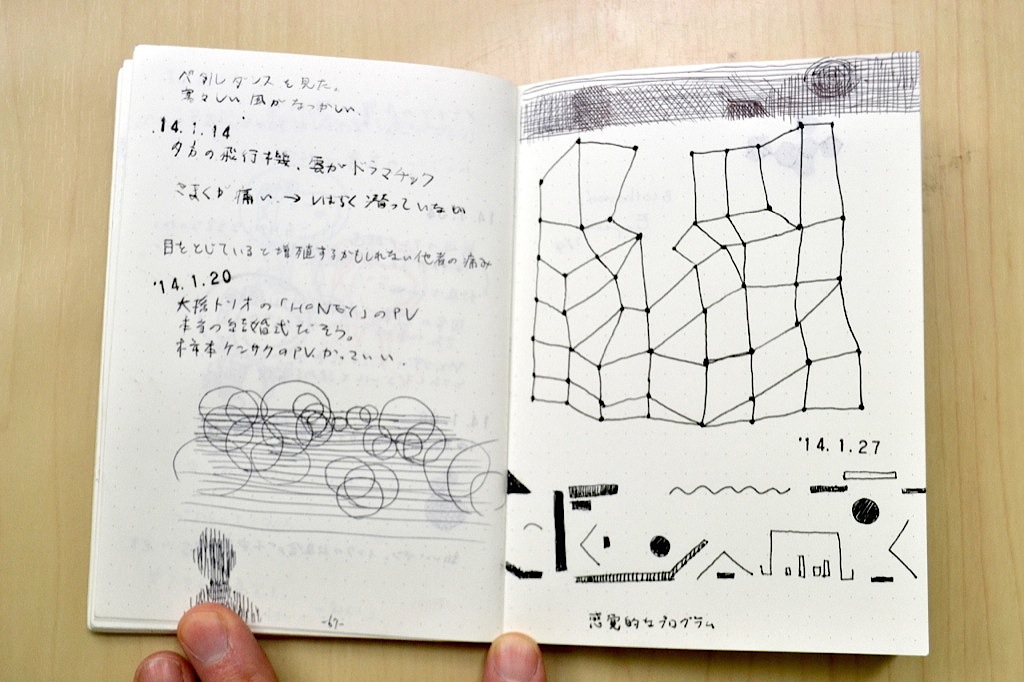 ペタルダンスを見た。
寒々しい風がなつかしい。
'14.1.14
夕方の飛行機、雲がドラマチック
こまくが痛い→しばらく潜っていないが
目をとじていると増殖するかもしれない他者の痛み
'14.1.20
大橋トリオの「HONEY」のPV
本当の結婚式だそう。
柿本ケンサクのPV.かっこいい.
-67-
'14.1.27
感覚的なプログラム